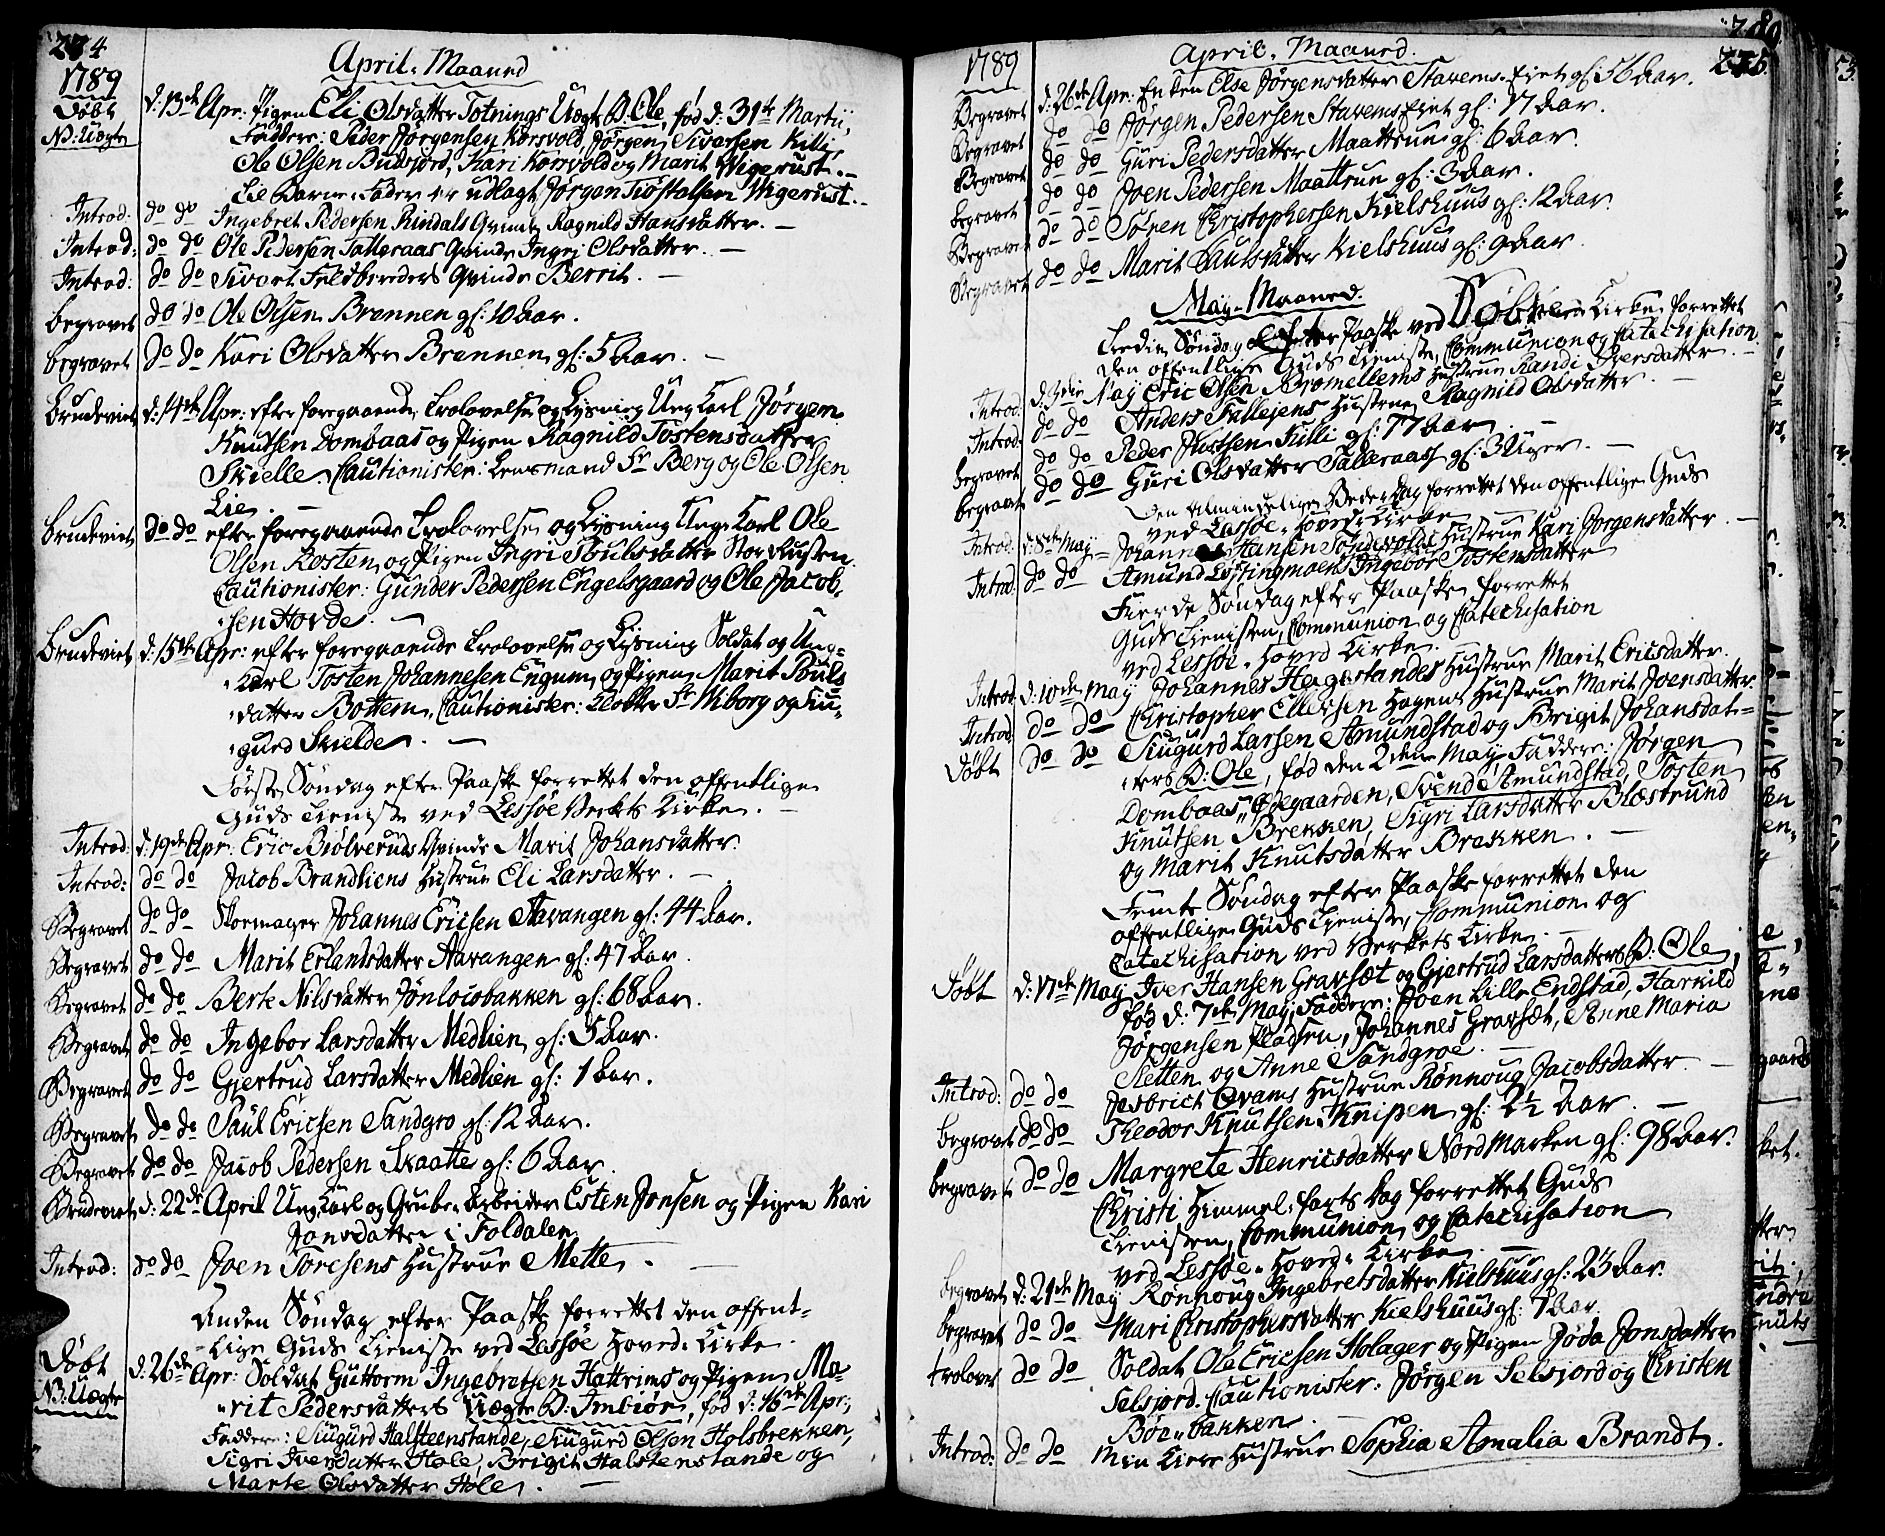 274
1789
April. Maaned
Døbt
NB: Uægte
d: 13de Apr: Pigen Eli Olsdatter Totnings Uægte B: Ole, fød d: 31te Martij,
Faddere: Peder Jørgensen Korsvold, Jørgen Siversen Killi,
Ole Olsen Budsjord, Kari Korsvold og Marit Wigerust. –
Til Barne-Fader er udlagt Jørgen Tiøstolsen Wigerust. –
Introd: do do Ingebret Pedersen Rindals Qvinde Ragnild Hansdatter. –
Introd: do do Ole Pedersen Talleraas Qvinde Ingri Olsdatter. –
Introd: do do Sivert Feldbereders Qvinde Berrit. –
begravet do do Ole Olsen Brennen gl: 10 Aar.
begravet do do Kari Olsdatter Brennen, gl: 5 Aar. –
brudeviet d: 14de Apr: efter foregaaende Trolovelse og Lysning Ung Karl Jørgen
Knudsen Dombaas og Pigen Ragnild Tostensdatter
Skielle. Cautionister: Lensmand Sr Berg og Ole Olsen
Lie. –
brudeviet do do efter foregaaende Trolovelse og Lysning Ung Karl Ole
Olsen Rosten og Pigen Ingri Poulsdatter Stor Rusten.
Cautionister: Gunder Pedersen Engelsgaard og Ole Jacob-
sen Horde. –
brudeviet d: 15de Apr: efter foregaaende Trolovelse og Lysning Soldat og Ung-
Karl Tosten Johannesen Engum, og Pigen Marit Pouls
datter Bottem, Cautionister: Klokker Sr Wiborg og Siu-
gurd Skielde. –
Første Søndag efter Paaske forrettet den offentlige
Guds Tieniste ved Lessøe Verkets Kirke. –
Introd: d: 19de Apr: Eric Biølveruds Qvinde Marit Johansdatter.
Introd: do do Jacob Brandliens Hustrue Eli Larsdatter. –
Begravet do do Skomager Johannes Ericsen Aavangen gl: 44 Aar.
Begravet do do Marit Erlandsdatter Aavangen gl: 47 Aar.
Begravet do do Berte Nilsdatter Jønlocobakken gl: 68 Aar.
Begravet do do Ingebor Larsdatter Medlien, gl: 5 Aar.
Begravet do do Gjertrud Larsdatter Medlien gl: 1 Aar.
Begravet do do Paul Ericsen Sandgro gl: 12 Aar.
Begravet do do Jacob Pedersen Skaatte gl: 6 Aar.
Brudeviet d: 22de April Ung Karl og Grube-Arbeider Esten Jonsen og Pigen Kari
Jonsdatter i Foldalen
Introd: do do Joen Toresens Hustrue Mette. –
Anden Søndag efter Paaske forrettet den offent-
lige Guds Tieniste ved Lessøe Hoved-Kirke.
Døbt
NB: Uægte
d: 26de Apr: Soldat Guttorm Ingebretsen Hattrims og Pigen Ma-
rit Pedersdatters Uægte B: Imbiør, fød d: 16de Apr:,
Faddere: Siugurd Halsteenstande, Siugurd Olsen Holsbrekken,
Sigri Iversdatter Hole, Brigit Halstenstande og
Marte Olsdatter Hole. –
280
275
1789
April. Maaned.
Begravet d: 26de Apr: Enken Else Jørgensdatter Stavems-Ejet gl: 56 Aar.
Begravet do do Jørgen Pedersen Stavems Ejet gl: 17 Aar.
Begravet do do Guri Pedersdatter Maattrun gl: 6 Aar.
begravet do do Joen Pedersen Maattrun gl: 3 Aar.
Begravet do do Sören Christophersen Kielshuus gl: 12 Aar.
Begravet do do Marit Paulsdatter Kielshuus gl: 9 Aar.
May-Maaned.
Tredie Søndag efter Paaske ved Kirke forrettet
den offentlige Guds Tieniste, Communion og Catechisation.
Introd: d: 3die May Eric Olsen Bromellems Hustrue Randi Iversdatter. –
Introd: do do Anders Fallejens Hustrue Ragnild Olsdatter. –
begravet do do Peder Justsen Killi gl: 77 Aar. –
begravet do do Guri Olsdatter Talleraas gl: 3 Uger. –
Den Almindelige Bededag forrettet den offentlige Guds
ved Lessøe-Hoved-Kirke –
Introd: d: 8de May Johannes Hansen Søndevolds Hustrue Kari Jørgensdatter. –
Introd: do do Amund Løftingmoens Ingebor Tostensdatter
Fierde Søndag efter Paaske forrettet
Guds Tienisten, Communion og Catechisation
ved Lessøe-Hoved Kirke.
Introd: d: 10de May Johannes Hagestandes Hustrue Marit Ericsdatter.
Introd: do do Christopher Ellevsen Hagens Hustrue Marit Joensdatter.
Døbt do do Siugurd Larsen Amundstad og Brigit Johansdat-
ters B: Ole, fød den 2den May, Faddere: Jørgen
Dombaas, Øvegaarden, Svend Amundstad, Tosten
Knutsen Brekken, Sigri Larsdatter Blæstrund
og Marit Knutsdatter Brekken. –
Femte Søndag efter Paaske forrettet den
offentlige Guds Tieniste, Communion og
Catechisation ved Verkets Kirke. –
Døbt d: 17de May Iver Hansen Gravsæt og Gjertrud Larsdatters B: Ole,
fød d: 7de May, Faddere: Joen Lille Endstad, Harvild
Jørgensen Pladsen, Johannes Gravsæt, Anne Maria
Sletten og Anne Sandgroe. –
Introd: do do Jesbrich Qvams Hustrue Rønnoug Jacobsdatter. –
begravet do do Theodor Knutsen Knipen gl: 2½ Aar. –
begravet do do Margrete Henricsdatter Nordmarken gl: 98 Aar.
Christi Himmel-farts Dag forrettet Guds
Tienisten, Communion og Catechisation
ved Lessøe-Hoved-Kirke. –
begravet d: 21de May Rønnoug Ingebretsdatter Kielshuus gl: 23 Aar.
begravet do do Mari Christophersdatter Kielshuus gl: 7 Aar.
trolovet do do Soldat Ole Ericsen Holager og Pigen Jøda Jonsdatter
Selsjord. Cautionister: Jørgen Selsjord og Christen
Böe-bakken. –
Introd: do do Min Kiere Hustrue Sophia Amalia Brandt.